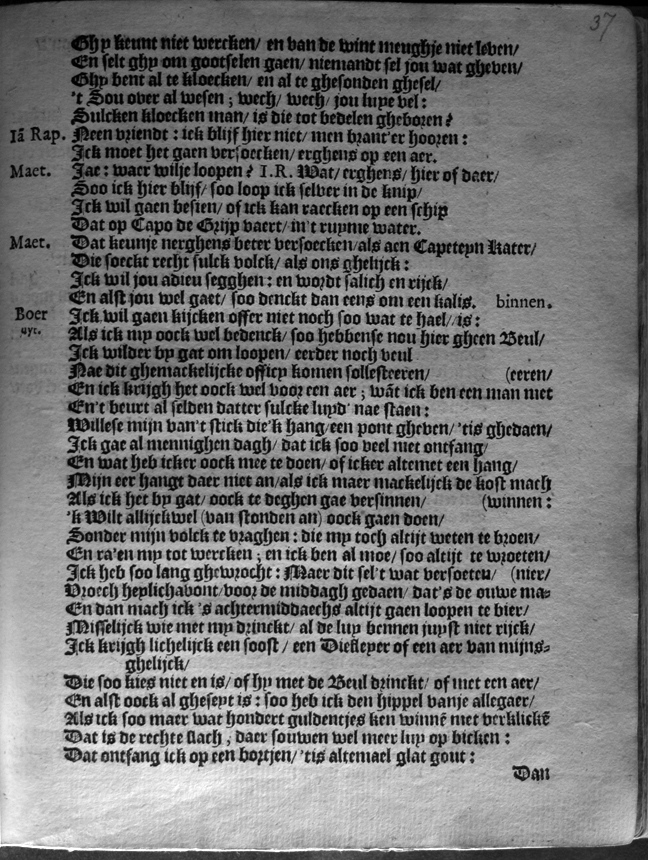 37
Ghy keunt niet wercken/ en van de wint meughje niet leven/
En selt ghy om gootselen gaen/ niemandt sel jou wat gheven/
Ghy bent al te kloecken/ en al te ghesonden ghesel/
't Sou over al wesen ; wech/ wech/ jou luye vel :
Sulcken kloecken man/ is die tot bedelen gheboren ?
Iã Rap. Neen vriendt : ick blijf hier niet/ men brant'er hooren :
Ick moet het gaen versoecken/ erghens op een aer.
Maet. Jae : waer wilje loopen ? I.R. Wat/ erghens/ hier of daer/
Soo ick hier blijf/ soo loop ick selver in de knip/
Ick wil gaen besien/ of ick kan raecken op een schip
Dat op Capo de Grijp vaert/ in't ruyme water.
Maet. Dat keunje nerghens beter versoecken/als aen Capeteyn Kater/
Die soeckt recht sulck volck/ als ons ghelijck :
Ick wil jou adieu segghen : en wordt salich en rijck/
En alst jou wel gaet/ soo denckt dan eens om een kalis. binnen.
Boer Ick wil gaen kijcken offer niet noch soo wat te hael/ is :
uyt. Als ick my oock wel bedenck/ soo hebbense nou hier gheen Beul/
Ick wilder by gat om loopen/ eerder noch veul
Nae dit ghemackelijcke officy komen sollesteeren/ (eeren/
En ick krijgh het oock wel voor een aer ; wãt ick ben een man met
En't beurt al selden datter sulcke luyd' nae staen :
Willese mijn van't stick die'k hang/een pont gheven/ 'tis ghedaen/
Ick gae al mennighen dagh/ dat ick soo veel niet ontfang/
En wat heb icker oock mee te doen/ of icker altemet een hang/
Mijn eer hangt daer niet an/als ick maer mackelijck de kost mach
Als ick het by gat/ oock te deghen gae versinnen/ (winnen :
'k Wilt allijckwel (van stonden an) oock gaen doen/
Sonder mijn volck te vraghen : die my toch altijt weten te broen/
En ra'en my tot wercken ; en ick ben al moe/ soo altijt te wroeten/
Ick heb soo lang ghewrocht : Maer dit sel't wat versoeten/ (nier/
Vroech heylichavont/voor de middagh gedaen/ dat's de ouwe ma-
En dan mach ick 's achtermiddaechs altijt gaen loopen te bier/
Misselijck wie met my drinckt/ al de luy bennen juyst niet rijck/
Ick krijgh lichelijck een soost / een Diefleyer of een aer van mijns-
ghelijck/
Die soo kies niet en is/ of hy met de Beul drinckt/ of met een aer/
En alst oock al gheseyt is : soo heb ick den hippel vanje allegaer/
Als ick soo maer wat hondert guldentjes ken winnẽ met verklickẽ
Dat is de rechte slach , daer souwen wel meer luy op bicken :
Dat ontfang ick op een bortjen/ 'tis altemael glat gout :
Dan